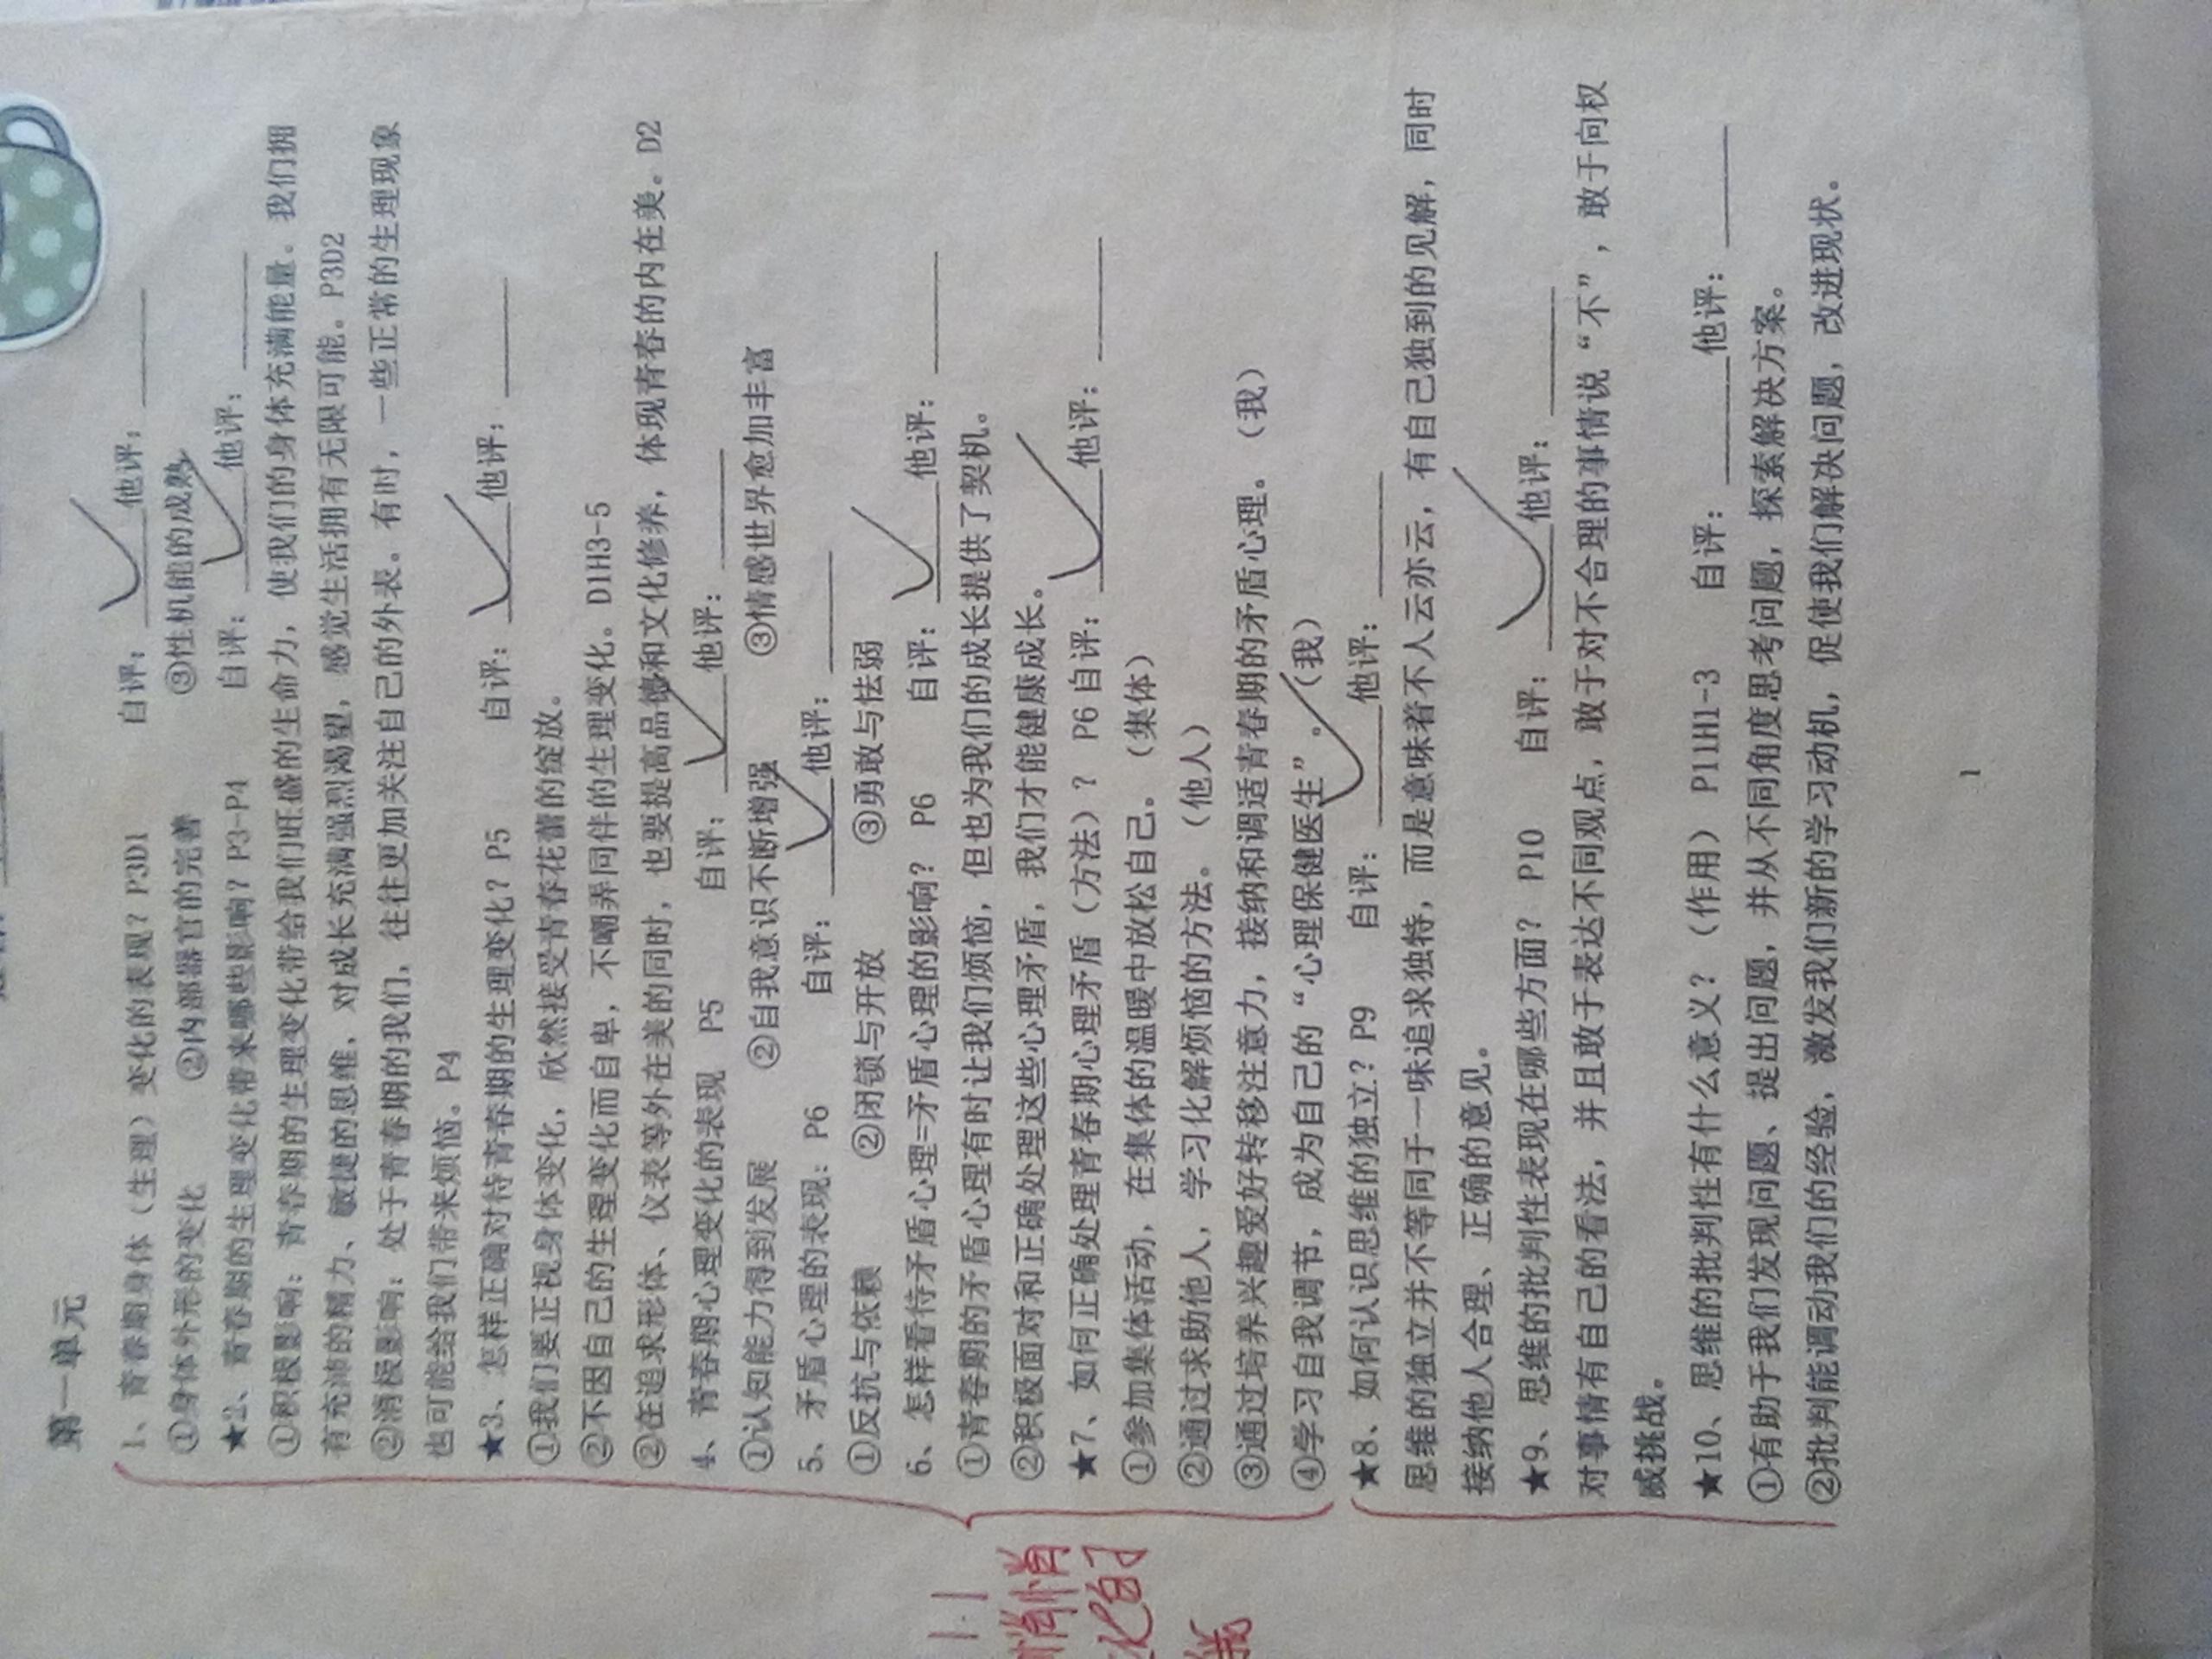 第一单元
1、青春期身体（生理）变化的表现？P3D1 自评：______他评：______
①身体外形的变化 ②内部器官的完善 ③性机能的成熟
★2、青春期的生理变化带来哪些影响？P3-P4 自评：______他评：______
①积极影响：青春期的生理变化带给我们旺盛的生命力，使我们的身体充满能量。我们拥
有充沛的精力、敏捷的思维，对成长充满强烈渴望，感觉生活拥有无限可能。P3D2
②消极影响：处于青春期的我们，往往更加关注自己的外表。有时，一些正常的生理现象
也可能给我们带来烦恼。P4
★3、怎样正确对待青春期的生理变化？P5 自评：______他评：______
①我们要正视身体变化，欣然接受青春花蕾的绽放。
②不因自己的生理变化而自卑，不嘲弄同伴的生理变化。D1H3-5
②在追求形体、仪表等外在美的同时，也要提高品德和文化修养，体现青春的内在美。D2
4、青春期心理变化的表现 P5 自评：______他评：______
①认知能力得到发展 ②自我意识不断增强 ③情感世界愈加丰富
5、矛盾心理的表现：P6 自评：______他评：______
①反抗与依赖 ②闭锁与开放 ③勇敢与怯弱
6、怎样看待矛盾心理=矛盾心理的影响？P6 自评：______他评：______
①青春期的矛盾心理有时让我们烦恼，但也为我们的成长提供了契机。
②积极面对和正确处理这些心理矛盾，我们才能健康成长。
★7、如何正确处理青春期心理矛盾（方法）？P6 自评：______他评：______
①参加集体活动，在集体的温暖中放松自己。（集体）
②通过求助他人，学习化解烦恼的方法。（他人）
③通过培养兴趣爱好转移注意力，接纳和调适青春期的矛盾心理。（我）
④学习自我调节，成为自己的“心理保健医生”。（我）
★8、如何认识思维的独立？P9 自评：______他评：______
思维的独立并不等同于一味追求独特，而是意味着不人云亦云，有自己独到的见解，同时
接纳他人合理、正确的意见。
★9、思维的批判性表现在哪些方面？P10 自评：______他评：______
对事情有自己的看法，并且敢于表达不同观点，敢于对不合理的事情说“不”，敢于向权
威挑战。
★10、思维的批判性有什么意义？（作用）P11H1-3 自评：______他评：______
①有助于我们发现问题、提出问题，并从不同角度思考问题，探索解决方案。
②批判能调动我们的经验，激发我们新的学习动机，促使我们解决问题，改进现状。
1
1.1
悄悄
化的